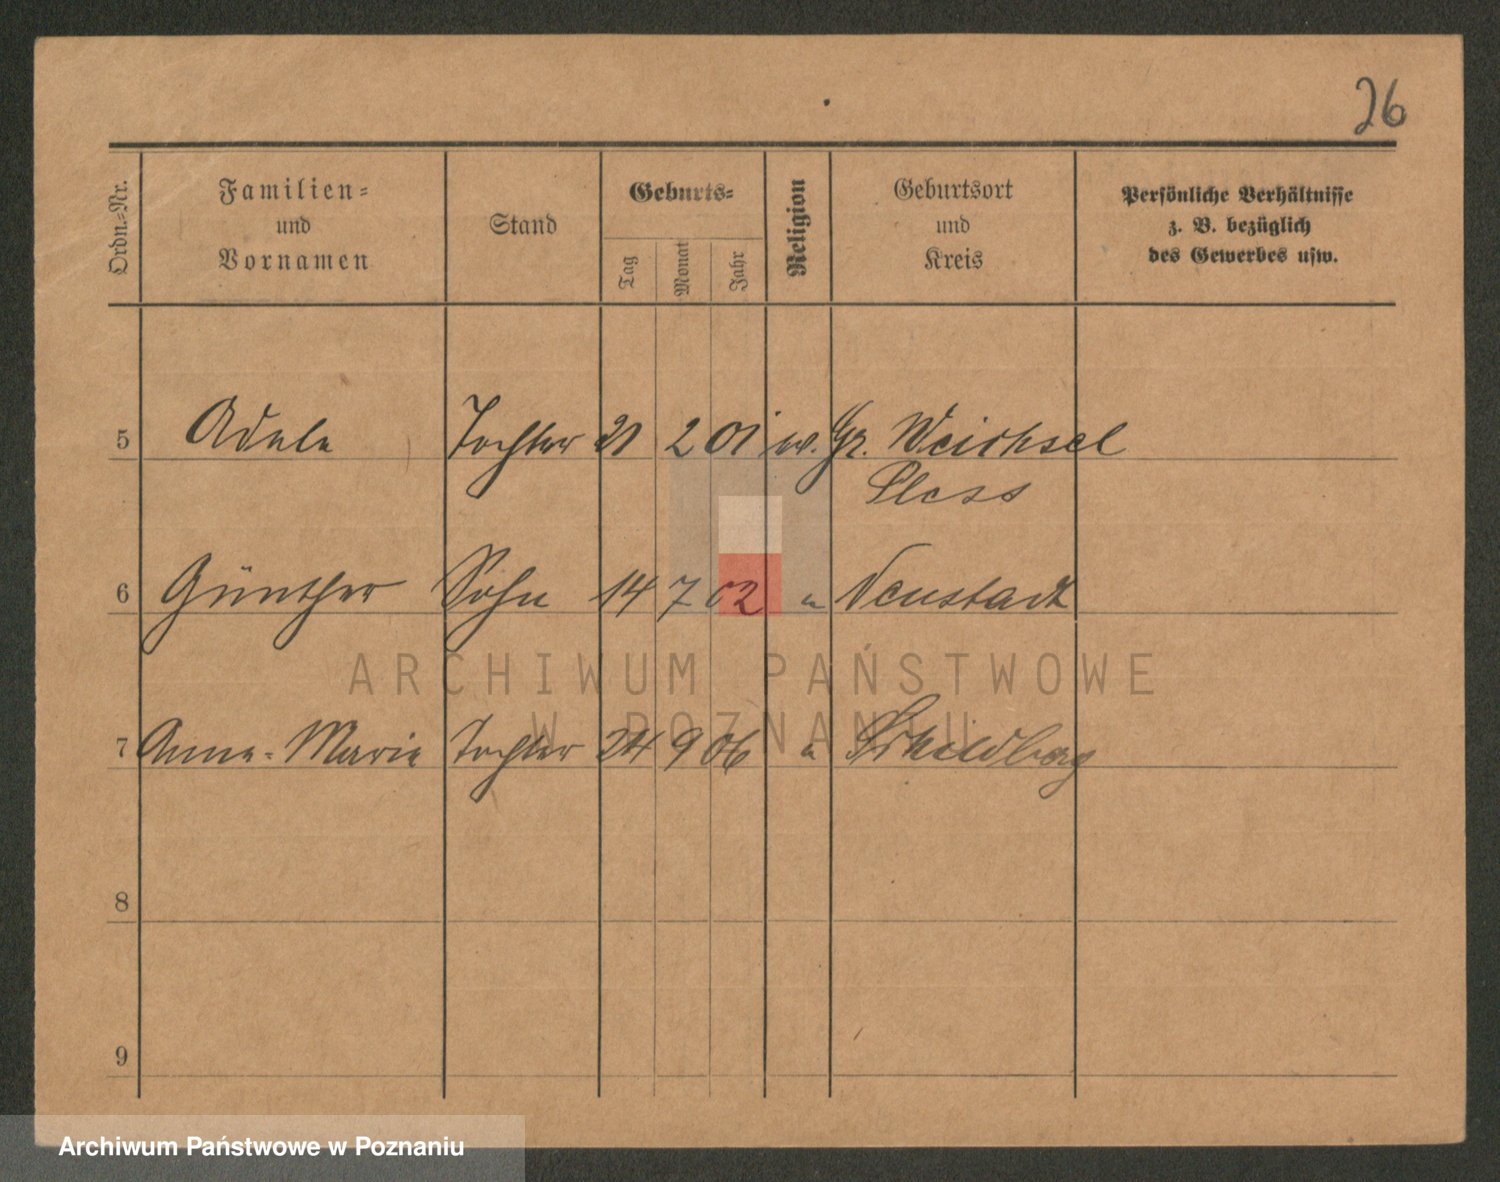 26
Ordn.-Nr.
Familien-
und
Vornamen
Stand
Geburts-
Tag
Monat
Jahr
Religion
Geburtsort
und
Kreis
Persönliche Verhältnisse
z. B. bezüglich
des Gewerbes usw.
5 Adele Tochter 21 2 01 Gr. Weichsel
Pless
6 Günther Sohn 14 7 02 " Neustadt
ARCHIWUM PAŃSTWOWE
W POZNANIU
7 Anne-Marie Tochter 24 9 06 " Schildberg
8
9
Archiwum Państwowe w Poznaniu